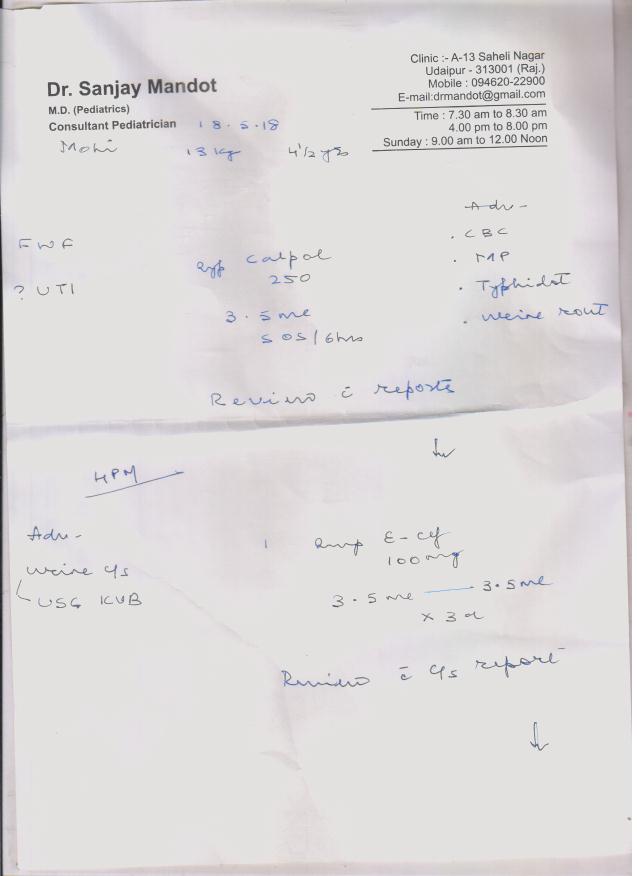 Dr. Sanjay Mandot
M.D. (Pediatrics)
Consultant Pediatrician
Clinic :- A-13 Saheli Nagar
Udaipur - 313001 (Raj.)
Mobile : 094620-22900
E-mail:drmandot@gmail.com
Time : 7.30 am to 8.30 am
4.00 pm to 8.00 pm
Sunday : 9.00 am to 12.00 Noon
18.5.18
Mohi 13 kg 4 1/2 yrs
Adv -
. CBC
. MP
. Typhidot
. Urine rout
FWF
? UTI
Syp Calpol
250
3.5 ml
SOS/6hrs
Review c̄ reports
4PM
Adv -
Urine c/s
USG KUB
Syp E-cef
100mg
3.5 ml — 3.5 ml
x 3d
Review c̄ c/s report